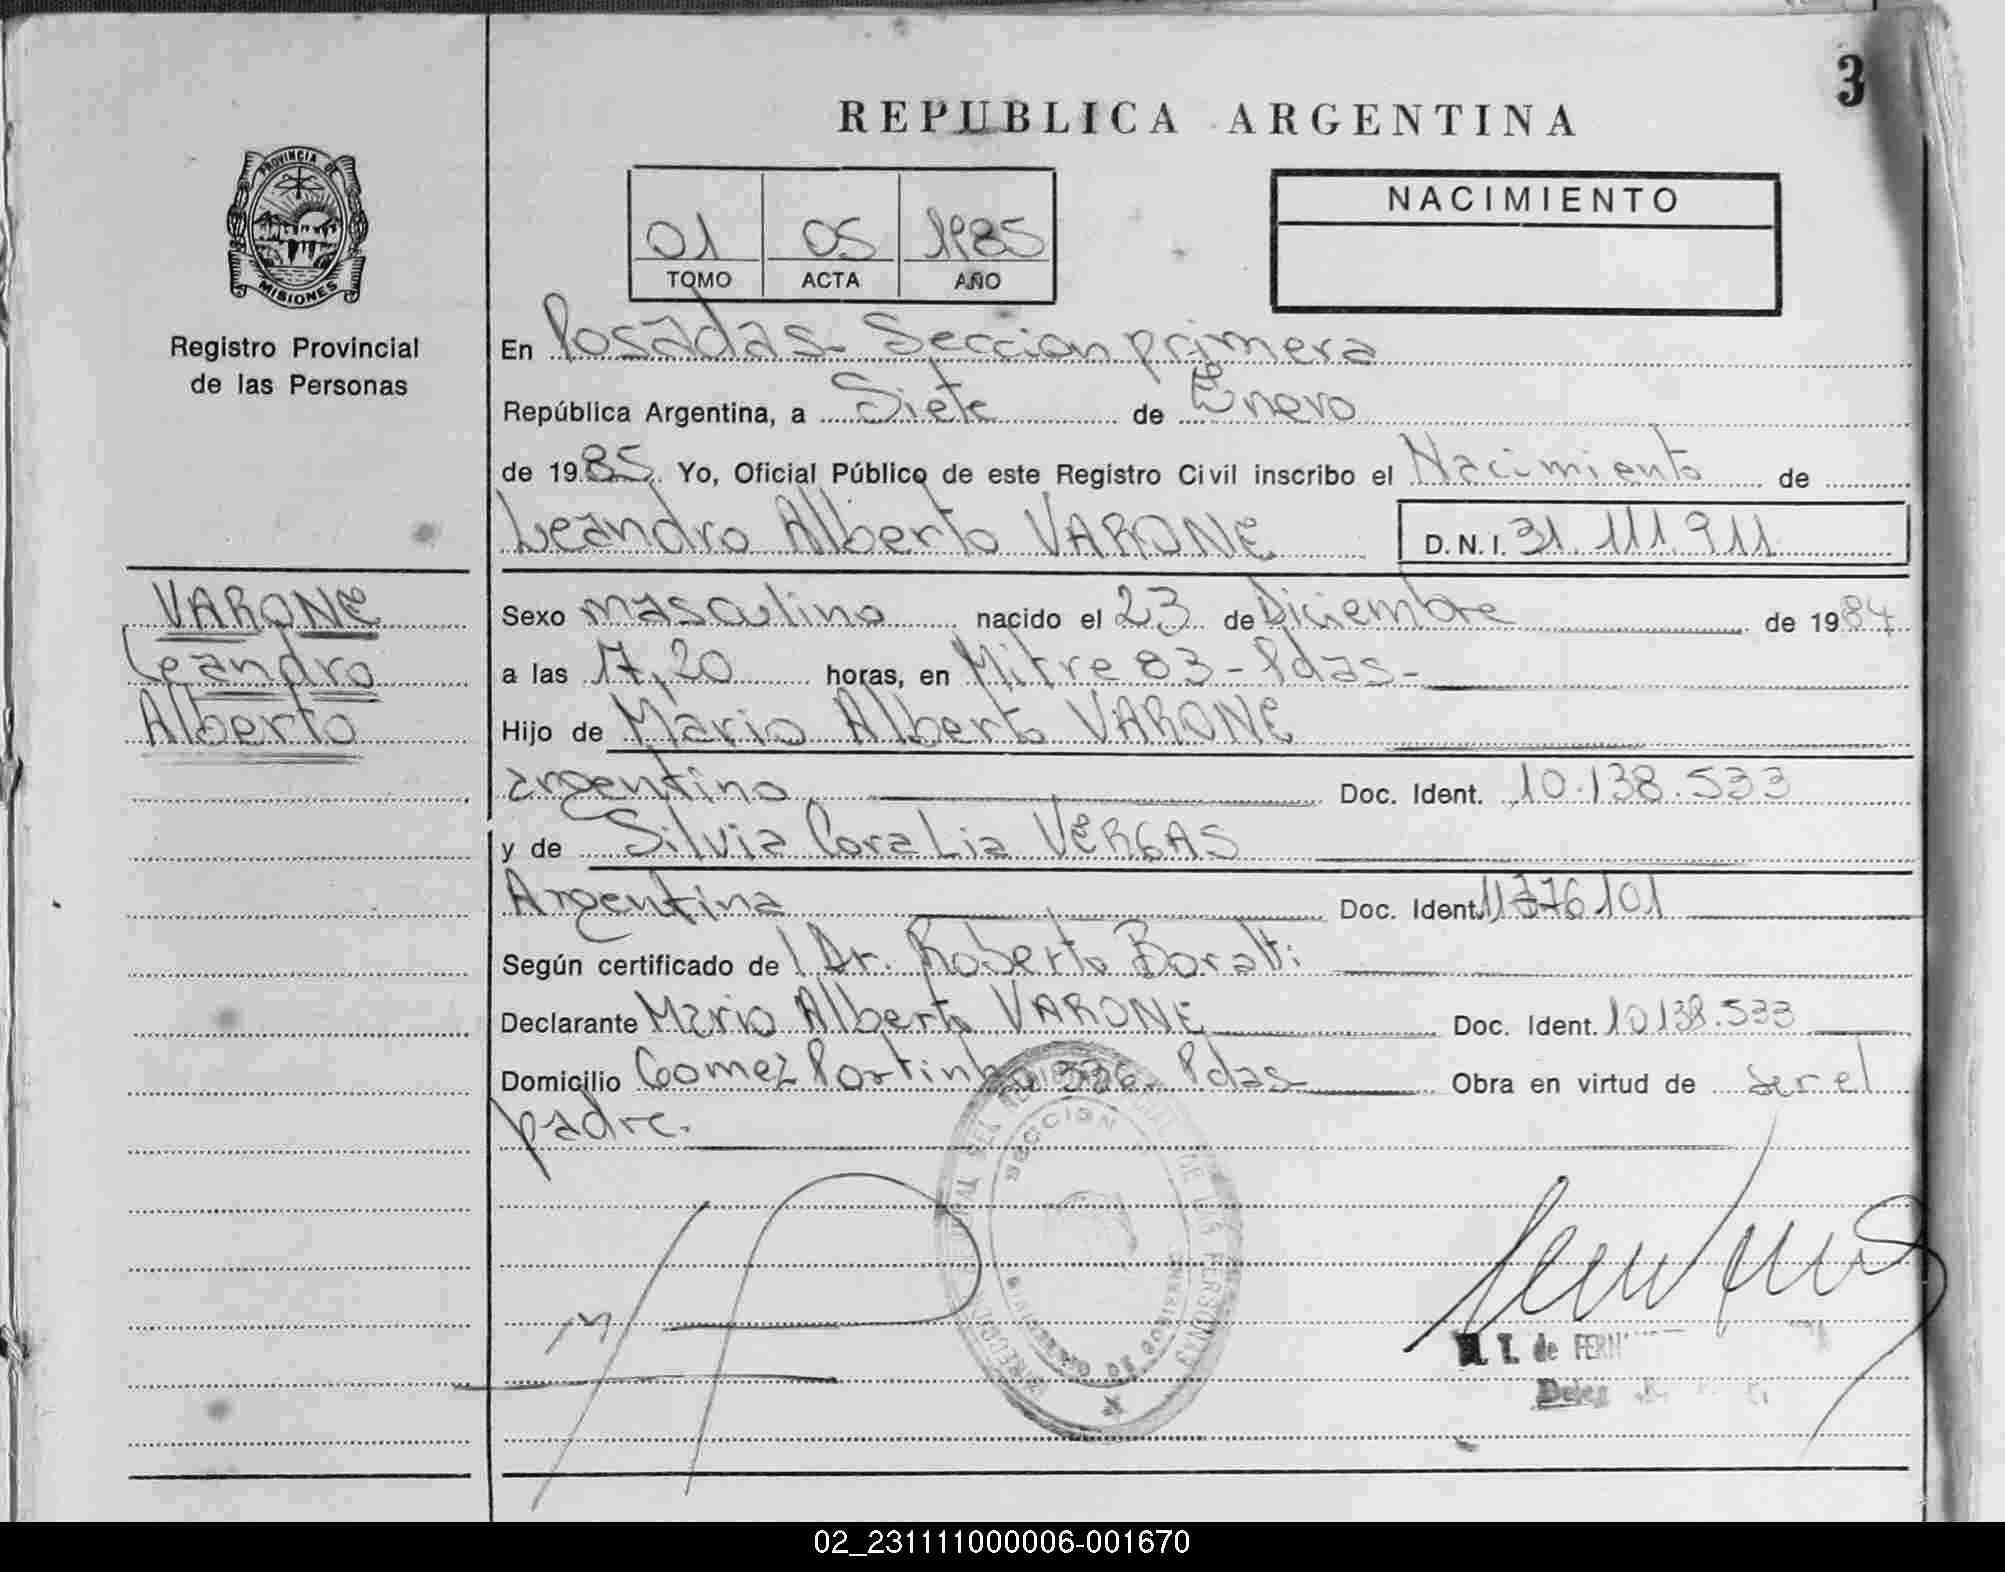 3
REPUBLICA ARGENTINA
PROVINCIA DE
MISIONES
Registro Provincial
de las Personas
01 05 1985
TOMO ACTA AÑO
NACIMIENTO
En Posadas - Seccion primera
República Argentina, a Siete de Enero
de 1985. Yo, Oficial Público de este Registro Civil inscribo el Nacimiento de
Leandro Alberto VARONE D.N.I. 31.111.911
VARONE
Leandro
Alberto
Sexo masculino nacido el 23 de Diciembre de 1984
a las 17,20 horas, en Mitre 83 - Pdas -
Hijo de Mario Alberto VARONE
argentino Doc. Ident. 10.138.533
y de Silvia Cora Lia VERGAS
Argentina Doc. Ident. 101
Según certificado de Dr. Roberto
Declarante Mario Alberto VARONE Doc. Ident. 10138.533
Domicilio Gomez Portinho Pdas - Obra en virtud de ser el
padre.
SECCION
DE LAS PERSONAS
de FERN
02_231111000006-001670